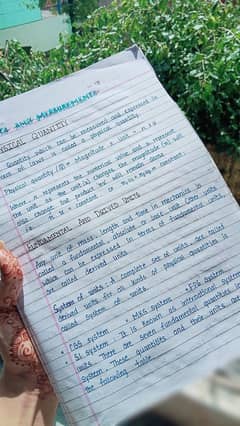 AND MEASUREMENTS
PHYSICAL QUANTITY
Quantity which can be measured and expressed in
of laws is called a physical quantity.
Physical quantity (Q) = Magnitude × unit = n × u
where, n represents the numerical value and u represent
the unit. as the unit (u) changes, the magnitude (n) will
also change but product 'nu' will remain same.
i.e. n u = constant, or n₁u₁ = n₂u₂ = constant;
FUNDAMENTAL AND DERIVED UNITS
Any unit of mass, length and time in mechanics is
called a fundamental, absolute or base unit. Other units
which can be expressed in terms of fundamental units,
are called derived units.
System of units : A complete set of units, are called
derived units for all kinds of physical quantities is
called system of units.
• CGS system • MKS system • FPS system
• SI system : It is known as international system of
units. There are seven fundamental quantities in
system. These quantities and their units are
the following table.